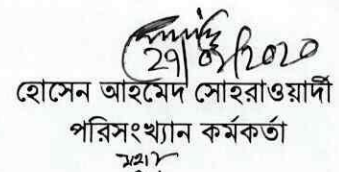 29/07/2020
হোসেন আহমেদ সোহরাওয়ার্দী
পরিসংখ্যান কর্মকর্তা